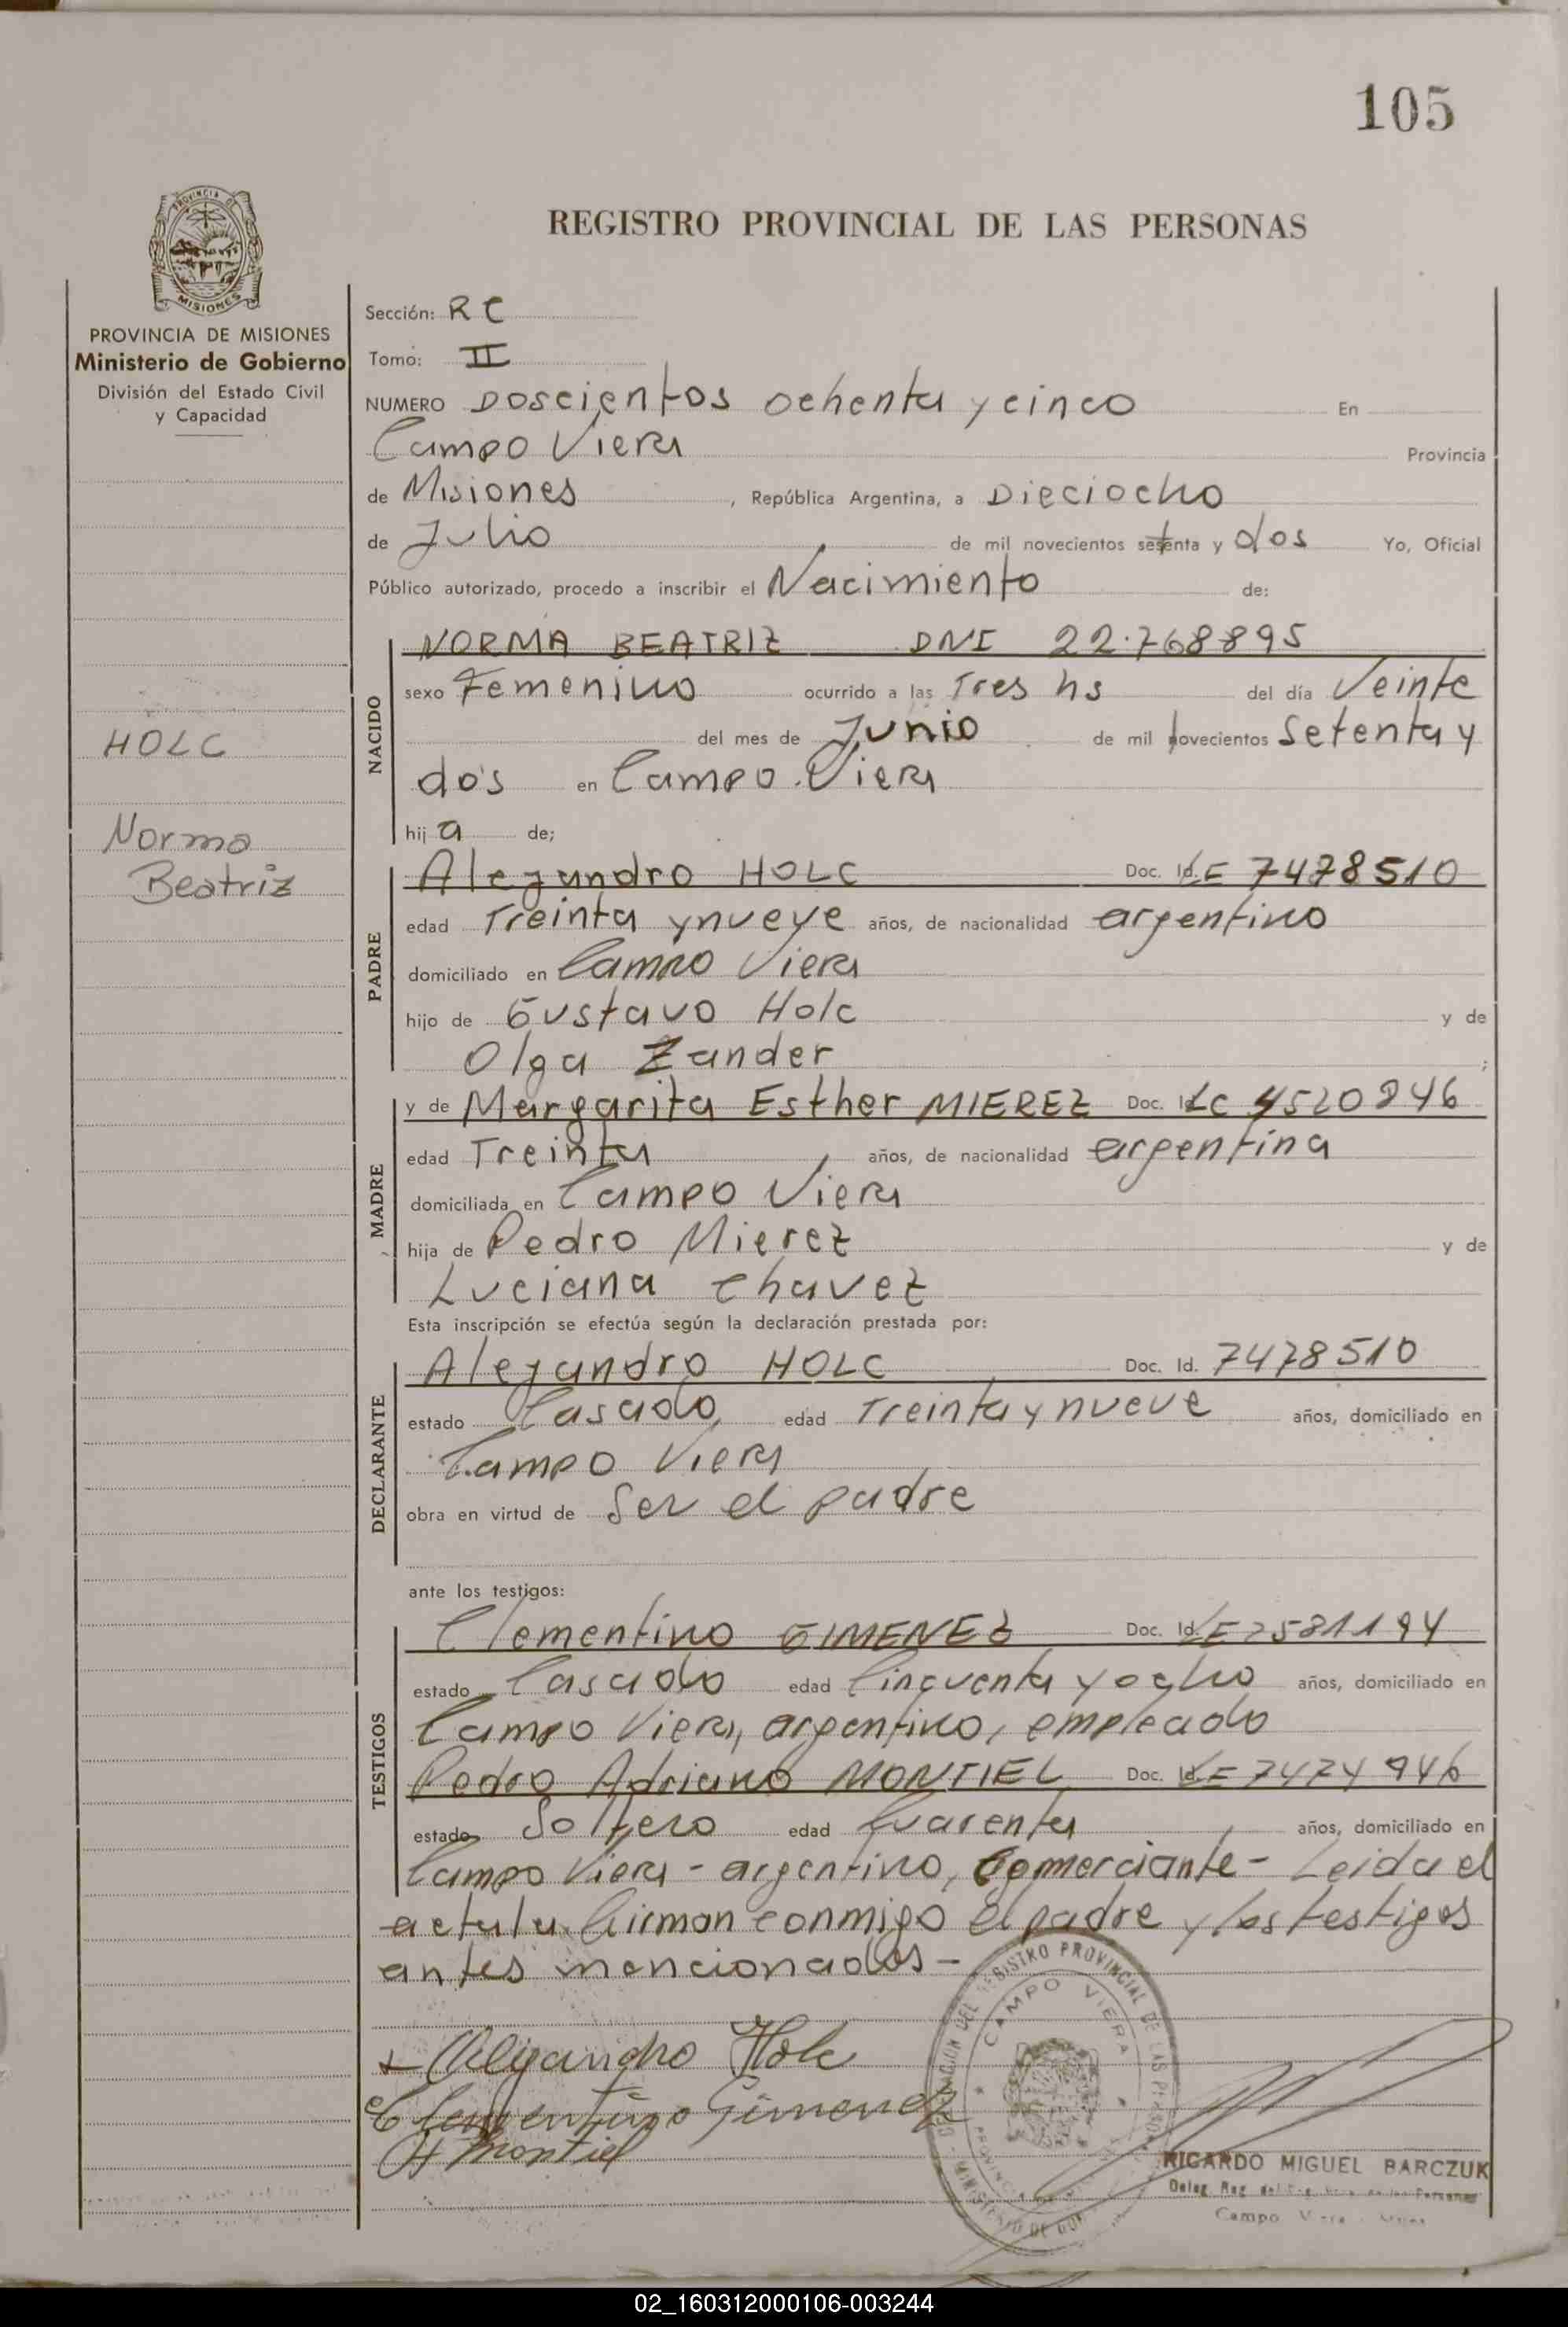 105
REGISTRO PROVINCIAL DE LAS PERSONAS
PROVINCIA DE MISIONES
Ministerio de Gobierno
División del Estado Civil
y Capacidad
HOLC
Norma
Beatriz
Sección: RC
Tomo: II
NUMERO Doscientos ochenta y cinco En
Campo Viera Provincia
de Misiones, República Argentina, a Dieciocho
de Julio de mil novecientos setenta y dos Yo, Oficial
Público autorizado, procedo a inscribir el Nacimiento de:
NACIDO
NORMA BEATRIZ DNI 22.768895
sexo Femenino ocurrido a las Tres hs del día Veinte
del mes de Junio de mil novecientos Setenta y
dos en Campo Viera
hija de;
PADRE
Alejandro HOLC Doc. Id. LE 7478510
edad Treinta y nueve años, de nacionalidad argentino
domiciliado en Campo Viera
hijo de Gustavo Holc y de
Olga Zander;
MADRE
y de Margarita Esther MIEREZ Doc. Id. LC 4520846
edad Treinta años, de nacionalidad argentina
domiciliada en Campo Viera
hija de Pedro Mierez y de
Luciana Chavez
Esta inscripción se efectúa según la declaración prestada por:
DECLARANTE
Alejandro HOLC Doc. Id. 7478510
estado Casado, edad Treinta y nueve años, domiciliado en
Campo Viera
obra en virtud de Ser el padre
ante los testigos:
TESTIGOS
Clementino GIMENEZ Doc. Id. LE 2581194
estado Casado edad Cincuenta y ocho años, domiciliado en
Campo Viera, argentino, empleado
Pedro Adriano MONTIEL Doc. Id. LE 7474946
estado Soltero edad Cuarenta años, domiciliado en
Campo Viera - argentino, comerciante - Leida el
acta la firman conmigo el padre y los testigos
antes mencionados -
Alejandro Holc
Clementino Gimenez
A Montiel
DELEGACION DEL REGISTRO PROVINCIAL DE LAS PERSONAS
CAMPO VIERA
MINISTERIO DE
RICARDO MIGUEL BARCZUK
Campo Viera
02_160312000106-003244